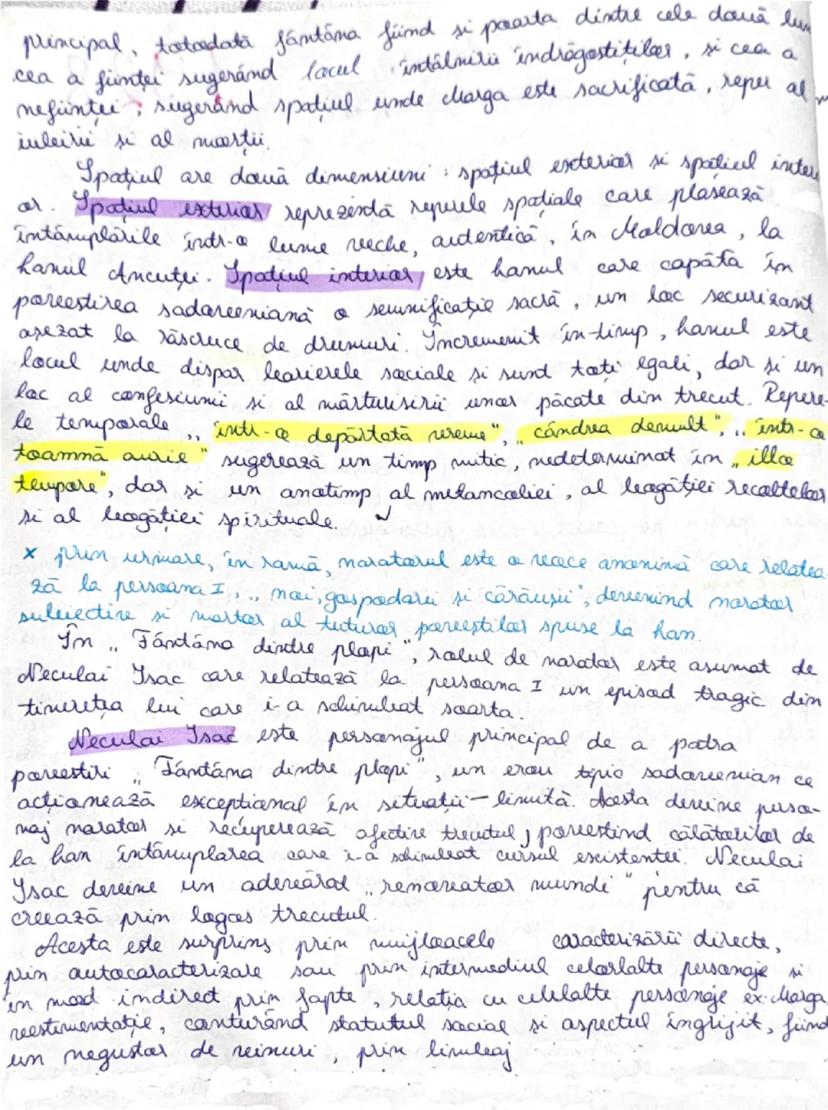 principal, totodată fântâna fiind și poarta dintre cele două lum
cea a ființei sugerând locul întâlnirii îndrăgostiților, și cea a
neființei, sugerând spațiul unde Marga este sacrificată, reper al
iubirii și al morții.
Spațiul are două dimensiuni: spațiul exterior și spațiul inter
or. Spațiul exterior reprezentă reperele spațiale care plasează
întâmplările într-o lume veche, autentică, în Moldova, la
hanul Ancuței. Spațiul interior este hanul care capătă în
povestirea sadoveniană o semnificație sacră, un loc securizant
așezat la răscruce de drumuri. Încremenit în-timp, hanul este
locul unde dispar barierele sociale și sunt toți egali, dar și un
loc al confesiunii și al mărturisirii unor păcate din trecut. Repere-
le temporale „într-o depărtată vreme", „cândva demult", „într-o
toamnă aurie" sugerează un timp mitic, nedeterminat în „illo
tempore", dar și un anotimp al melancoliei, al bogăției recoltelor
și al bogăției spirituale. ✓
x prin urmare, în ramă, naratorul este o voce anonimă care relatea
ză la persoana I, „noi, gospodarii și cărăușii", devenind narator
subiectiv și martor al tuturor poveștilor spuse la han.
În „Fântâna dintre plopi", rolul de narator este asumat de
Neculai Isac care relatează la persoana I un episod tragic din
tinerețea lui care i-a schimbat soarta.
Neculai Isac este personajul principal de a patra
povestiri „Fântâna dintre plopi", un erou tipic sadovenian ce
acționează excepțional în situații-limită. Acesta devine perso-
naj narator și recuperează afectiv trecutul, povestind călătorilor de
la han întâmplarea care i-a schimbat cursul existenței. Neculai
Isac devine un adevărat „renovator mundi" pentru că
creează prin logos trecutul.
Acesta este surprins prin mijloacele caracterizării directe,
prin autocaracterizare sau prin intermediul celorlalte personaje și
în mod indirect prin fapte, relația cu celelalte personaje ex: Marga
vestimentație, conturând statutul social și aspectul îngrijit, fiind
un negustor de vinuri, prin limbaj